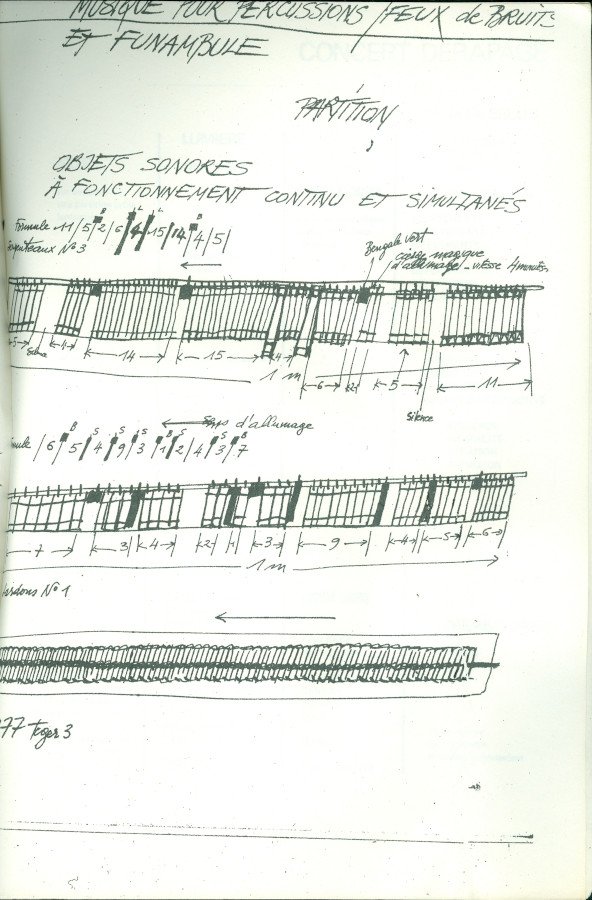 MUSIQUE POUR PERCUSSIONS / FEUX de BRUITS
ET FUNAMBULE
PARTITION
OBJETS SONORES
À FONCTIONNEMENT CONTINU ET SIMULTANÉS
B L L B
Formule 11/5/2/6/4/15/14/4/5/
N° 3
Bengale vert
d'allumage - vitesse 4 minutes
14 15 4 6 2 5 11
1 m
Silence
sens d'allumage
B S S S B S S B
/6/5/4/9/3/1/2/4/3/7
7 3 4 2 1 3 9 4 5 6
1 m
N° 1
77 Tiger 3